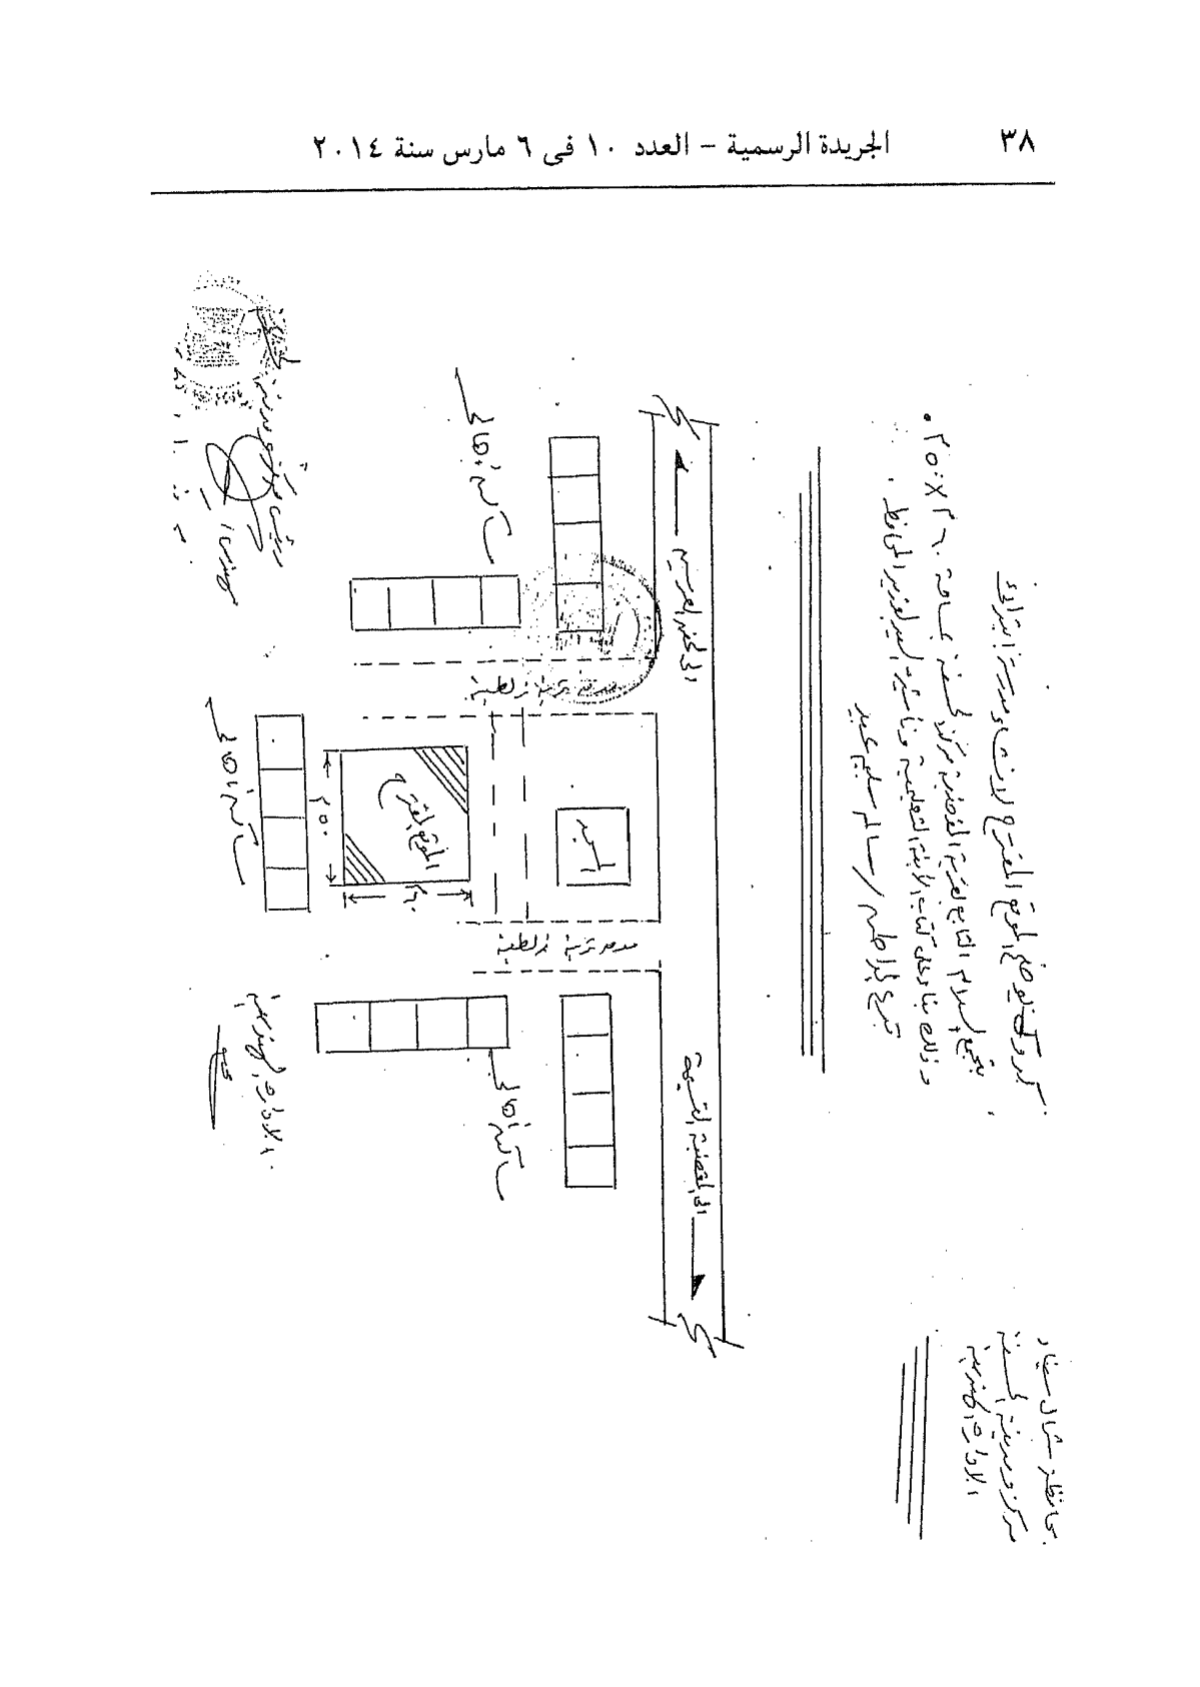 ٣٨
الجريدة الرسمية – العدد ١٠ فى ٦ مارس سنة ٢٠١٤
محافظة شمال سيناء
مركز ومدينة الحسنة
الادارة الهندسية
كروكى يوضح الموقع المقترح لإنشاء مدرسة ابتدائى
بتجمع السلام التابع لقرية المقضبة مركز الحسنة بمساحة ٦٠م × ٥٠م
وذلك بناء على كتاب الأبنية التعليمية وتأشيرة السيد الوزير المحافظ .
تبرع المواطن / سالم سليم عبيد
الى المقضبة القسيمة
مساكن أهالى
مدق تربة زلطية
المسجد
الموقع المقترح
٥٠م
٦٠م
مساكن أهالى
مدق تربة زلطية
مساكن أهالى
الادارة الهندسية
رئيس مركز ومدينة
مهندس /